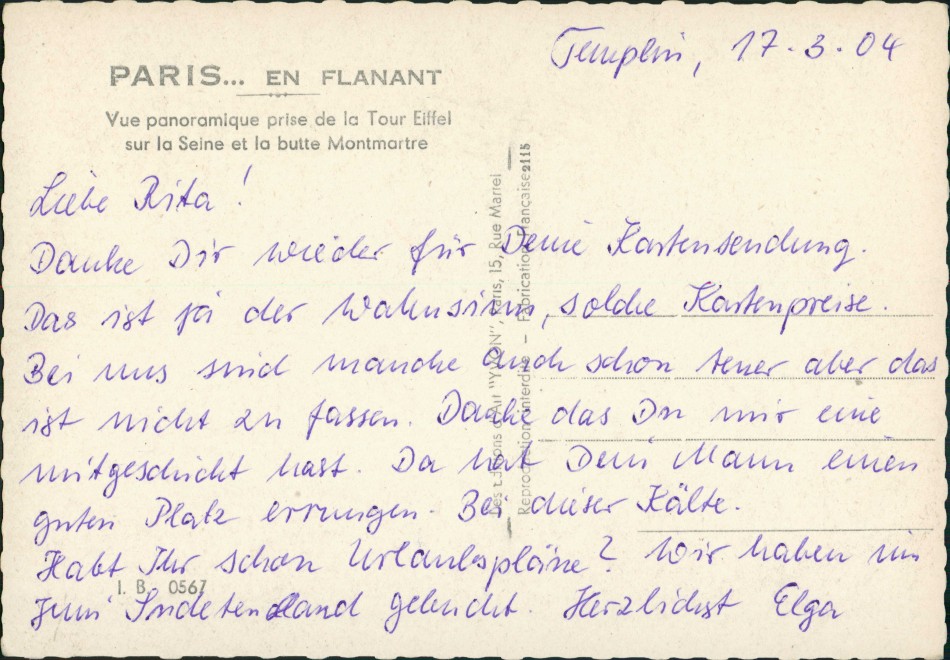 Templin, 17.3.04
PARIS... EN FLANANT
Vue panoramique prise de la Tour Eiffel
sur la Seine et la butte Montmartre
Liebe Rita!
Danke Dir wieder für Deine Kartensendung.
Das ist ja der Wahnsinn, solche Kartenpreise.
Bei uns sind manche auch schon teuer aber das
ist nicht zu fassen. Danke das Du mir eine
mitgeschickt hast. Da hat Dein Mann einen
guten Platz errungen. Bei dieser Kälte.
Habt Ihr schon Urlaubspläne? Wir haben im
Juni Sudetenland gebucht. Herzlichst Elga
I. B. 0567
Les Editions d'Art "YVON", Paris, 15, Rue Martel
Reproduction interdite – Fabrication Française 2115